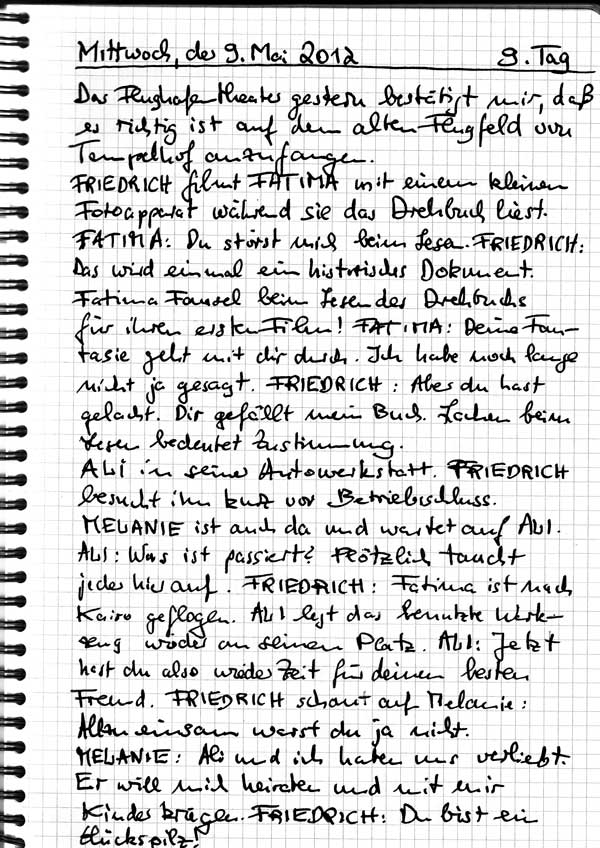 Mittwoch, der 9. Mai 2012 9. Tag
Das Flughafentheater gestern bestätigt mir, daß
es richtig ist auf dem alten Flugfeld von
Tempelhof anzufangen.
FRIEDRICH filmt FATIMA mit einem kleinen
Fotoapparat während sie das Drehbuch liest.
FATIMA: Du störst mich beim Lesen. FRIEDRICH:
Das wird einmal ein historisches Dokument.
Fatima beim Lesen des Drehbuchs
für ihren ersten Film! FATIMA: Deine Fan-
tasie geht mit dir durch. Ich habe noch lange
nicht ja gesagt. FRIEDRICH: Aber du hast
gelacht. Dir gefällt mein Buch. Lachen beim
Lesen bedeutet Zustimmung.
ALI in seiner Autowerkstatt. FRIEDRICH
besucht ihn kurz vor Betriebsschluss.
MELANIE ist auch da und wartet auf ALI.
ALI: Was ist passiert? Plötzlich taucht
jeder hier auf. FRIEDRICH: Fatima ist nach
Kairo geflogen. ALI legt das benutzte Werk-
zeug wieder an seinen Platz. ALI: Jetzt
hast du also wieder Zeit für deinen besten
Freund. FRIEDRICH schaut auf Melanie:
Allzu einsam warst du ja nicht.
MELANIE: Ali und ich haben uns verliebt.
Er will mich heiraten und mit mir
Kinder kriegen. FRIEDRICH: Du bist ein
Glückspilz!